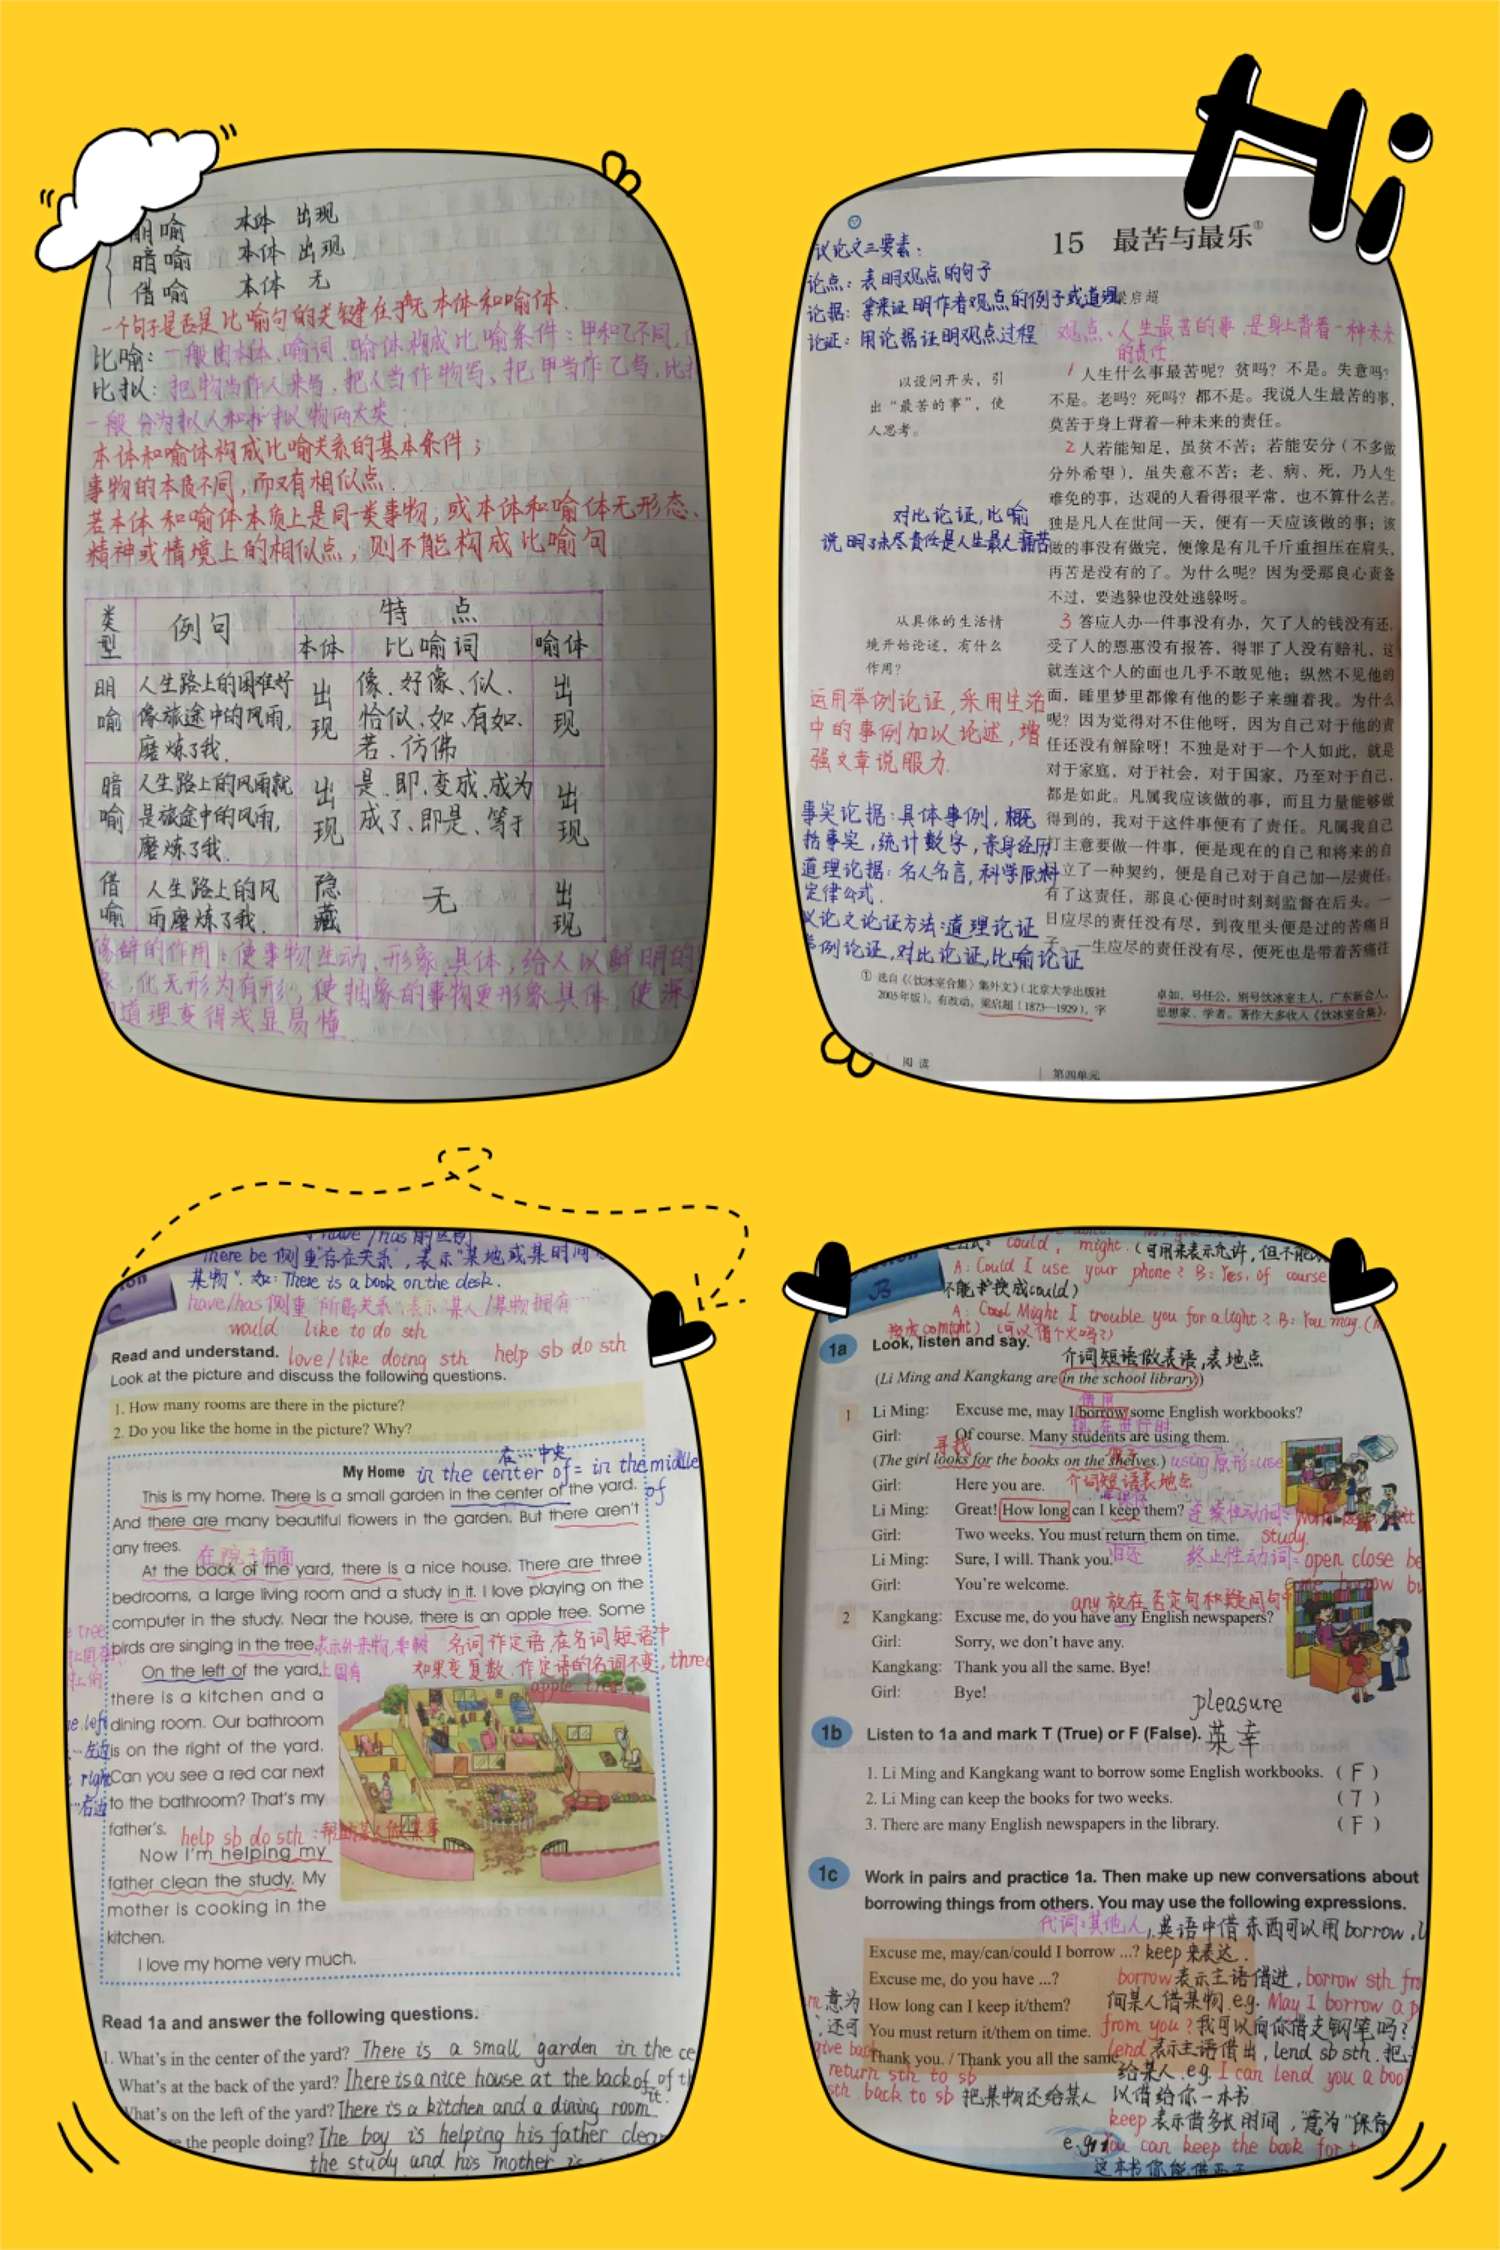 Hi
明喻 本体 出现
暗喻 本体 出现
借喻 本体 无
一个句子是否是比喻句的关键在于有无本体和喻体.
比喻：一般由本体、喻词、喻体构成比喻条件：甲和乙不同,
比拟：把物当作人来写、把人当作物写、把甲当作乙写,比拟
一般分为拟人和拟物两大类.
本体和喻体构成比喻关系的基本条件；
事物的本质不同,而又有相似点.
若本体和喻体本质上是同一类事物；或本体和喻体无形态、
精神或情境上的相似点,则不能构成比喻句
类型 例句 特点
本体 比喻词 喻体
明喻 人生路上的困难好像旅途中的风雨,磨炼了我. 出现 像、好像、似、恰似、如、有如、若、仿佛 出现
暗喻 人生路上的风雨就是旅途中的风雨,磨炼了我. 出现 是、即、变成、成为成了、即是、等于 出现
借喻 人生路上的风雨磨炼了我. 隐藏 无 出现
修辞的作用：使事物生动、形象、具体,给人以鲜明的
化无形为有形,使抽象的事物更形象具体,使深
道理变得浅显易懂.
15 最苦与最乐①
议论文三要素：
论点：表明观点的句子
论据：拿来证明作者观点的例子或道理
论证：用论据证明观点过程
梁启超
观点、人生最苦的事是身上背着一种未来
的责任
以设问开头，引
出“最苦的事”，使
人思考。
1 人生什么事最苦呢？贫吗？不是。失意吗？
不是。老吗？死吗？都不是。我说人生最苦的事，
莫苦于身上背着一种未来的责任。
2 人若能知足，虽贫不苦；若能安分（不多做
分外希望），虽失意不苦；老、病、死，乃人生
难免的事，达观的人看得很平常，也不算什么苦。
独是凡人在世间一天，便有一天应该做的事；该
做的事没有做完，便像是有几千斤重担压在肩头，
再苦是没有的了。为什么呢？因为受那良心责备
不过，要逃躲也没处逃躲呀。
对比论证,比喻
说明了未尽责任是人生最大痛苦
从具体的生活情
境开始论述，有什么
作用？
3 答应人办一件事没有办，欠了人的钱没有还，
受了人的恩惠没有报答，得罪了人没有赔礼，这
就连这个人的面也几乎不敢见他；纵然不见他的
面，睡里梦里都像有他的影子来缠着我。为什么
呢？因为觉得对不住他呀，因为自己对于他的责
任还没有解除呀！不独是对于一个人如此，就是
对于家庭，对于社会，对于国家，乃至对于自己，
都是如此。凡属我应该做的事，而且力量能够做
得到的，我对于这件事便有了责任。凡属我自己
打主意要做一件事，便是现在的自己和将来的自
立了一种契约，便是自己对于自己加一层责任。
有了这责任，那良心便时时刻刻监督在后头。一
日应尽的责任没有尽，到夜里头便是过的苦痛日
一生应尽的责任没有尽，便死也是带着苦痛往
运用举例论证,采用生活
中的事例加以论述,增
强文章说服力.
事实论据：具体事例,概
括事实,统计数字,亲身经历
道理论据：名人名言,科学原料
定律公式.
议论文论证方法：道理论证
举例论证,对比论证,比喻论证
① 选自《〈饮冰室合集〉集外文》（北京大学出版社
2005年版）。有改动。梁启超（1873—1929），字
卓如，号任公，别号饮冰室主人，广东新会人，
思想家、学者。著作大多收入《饮冰室合集》。
阅读
第四单元
have/has的区别
There be 侧重“存在关系”, 表示“某地或某时间
某物”. 如：There is a book on the desk.
have/has 侧重“所属关系”,表示“某人/某物拥有…”
C
would like to do sth
Read and understand. love/like doing sth help sb do sth
Look at the picture and discuss the following questions.
1. How many rooms are there in the picture?
2. Do you like the home in the picture? Why?
在…中央
My Home in the center of = in the middle of
This is my home. There is a small garden in the center of the yard.
And there are many beautiful flowers in the garden. But there aren't
any trees.
在院子后面
At the back of the yard, there is a nice house. There are three
bedrooms, a large living room and a study in it. I love playing on the
computer in the study. Near the house, there is an apple tree. Some
birds are singing in the tree. 表示外来物,在树上 名词作定语,在名词短语中
如果变复数,作定语的名词不变, three
apple trees
On the left of the yard,
there is a kitchen and a
dining room. Our bathroom
is on the right of the yard.
Can you see a red car next
to the bathroom? That's my
father's. help sb do sth：帮助某人做某事
…左边
right
…右边
Now I'm helping my
father clean the study. My
mother is cooking in the
kitchen.
I love my home very much.
Read 1a and answer the following questions.
1. What's in the center of the yard? There is a small garden in the ce
What's at the back of the yard? There is a nice house at the back of it.
What's on the left of the yard? There is a kitchen and a dining room
the people doing? The boy is helping his father clean
the study and his mother is
could, might.(可用来表示允许,但不能
A: Could I use your phone? B: Yes, of course
不能换成could)
B
A: Might I trouble you for a light? B: You may.
(可以借个火吗?)
1a Look, listen and say.
介词短语做表语,表地点
(Li Ming and Kangkang are in the school library.)
借用
1 Li Ming: Excuse me, may I borrow some English workbooks?
现在进行时
Girl: Of course. Many students are using them.
寻找
(The girl looks for the books on the shelves.) using 原形=use
Girl: Here you are. 介词短语表地点
Li Ming: Great! How long can I keep them? 连续性动词=
Girl: Two weeks. You must return them on time. study.
Li Ming: Sure, I will. Thank you. 归还 终止性动词= open close be
Girl: You're welcome.
any 放在否定句和疑问句中
2 Kangkang: Excuse me, do you have any English newspapers?
Girl: Sorry, we don't have any.
Kangkang: Thank you all the same. Bye!
Girl: Bye!
pleasure
1b Listen to 1a and mark T (True) or F (False). 荣幸
1. Li Ming and Kangkang want to borrow some English workbooks. ( F )
2. Li Ming can keep the books for two weeks. ( T )
3. There are many English newspapers in the library. ( F )
1c Work in pairs and practice 1a. Then make up new conversations about
borrowing things from others. You may use the following expressions.
代词：其他人 英语中借东西可以用 borrow,
Excuse me, may/can/could I borrow ...? keep来表达.
Excuse me, do you have ...? borrow表示主语借进, borrow sth fro
How long can I keep it/them? 向某人借某物. e.g. May I borrow a p
You must return it/them on time. from you? 我可以向你借支钢笔吗?
Thank you. / Thank you all the same. lend表示主语借出, lend sb sth. 把
给某人. e.g. I can lend you a boo
以借给你一本书.
意为
还可
give back
return sth to sb
sth back to sb 把某物还给某人
keep表示借多长时间, 意为“保存
e.g. You can keep the book for